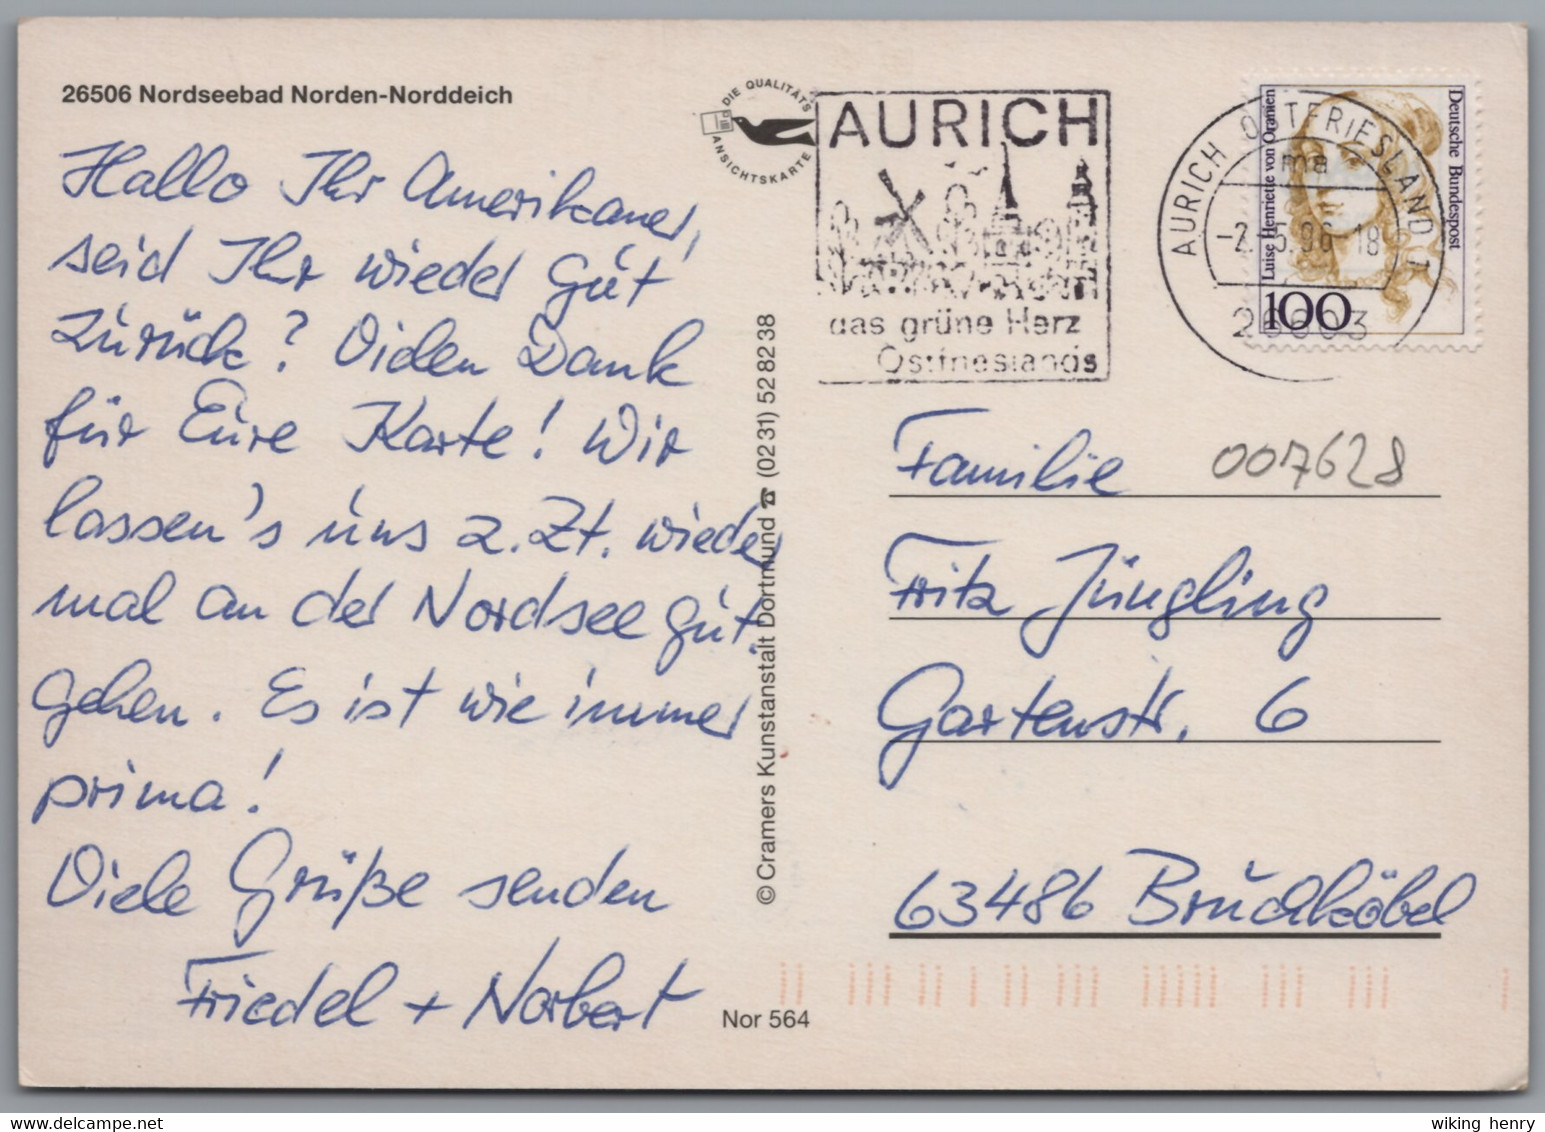 26506 Nordseebad Norden-Norddeich
Hallo Ihr Amerikaner,
seid Ihr wieder gut
zurück? Vielen Dank
für Eure Karte! Wir
lassen's uns z. Zt. wieder
mal an der Nordsee gut
gehen. Es ist wie immer
prima!
Viele Grüße senden
Friedel + Norbert
DIE QUALITÄTS
ANSICHTSKARTE
© Cramers Kunstanstalt Dortmund ☎ (02 31) 52 82 38
Nor 564
AURICH
das grüne Herz
Ostfrieslands
AURICH OSTFRIESLAND 1
ma
-2.-5.96-18
26603
Luise Henriette von Oranien
Deutsche Bundespost
100
Familie 007628
Fritz Jüngling
Gartenstr. 6
63486 Bruchköbel
wiking henry